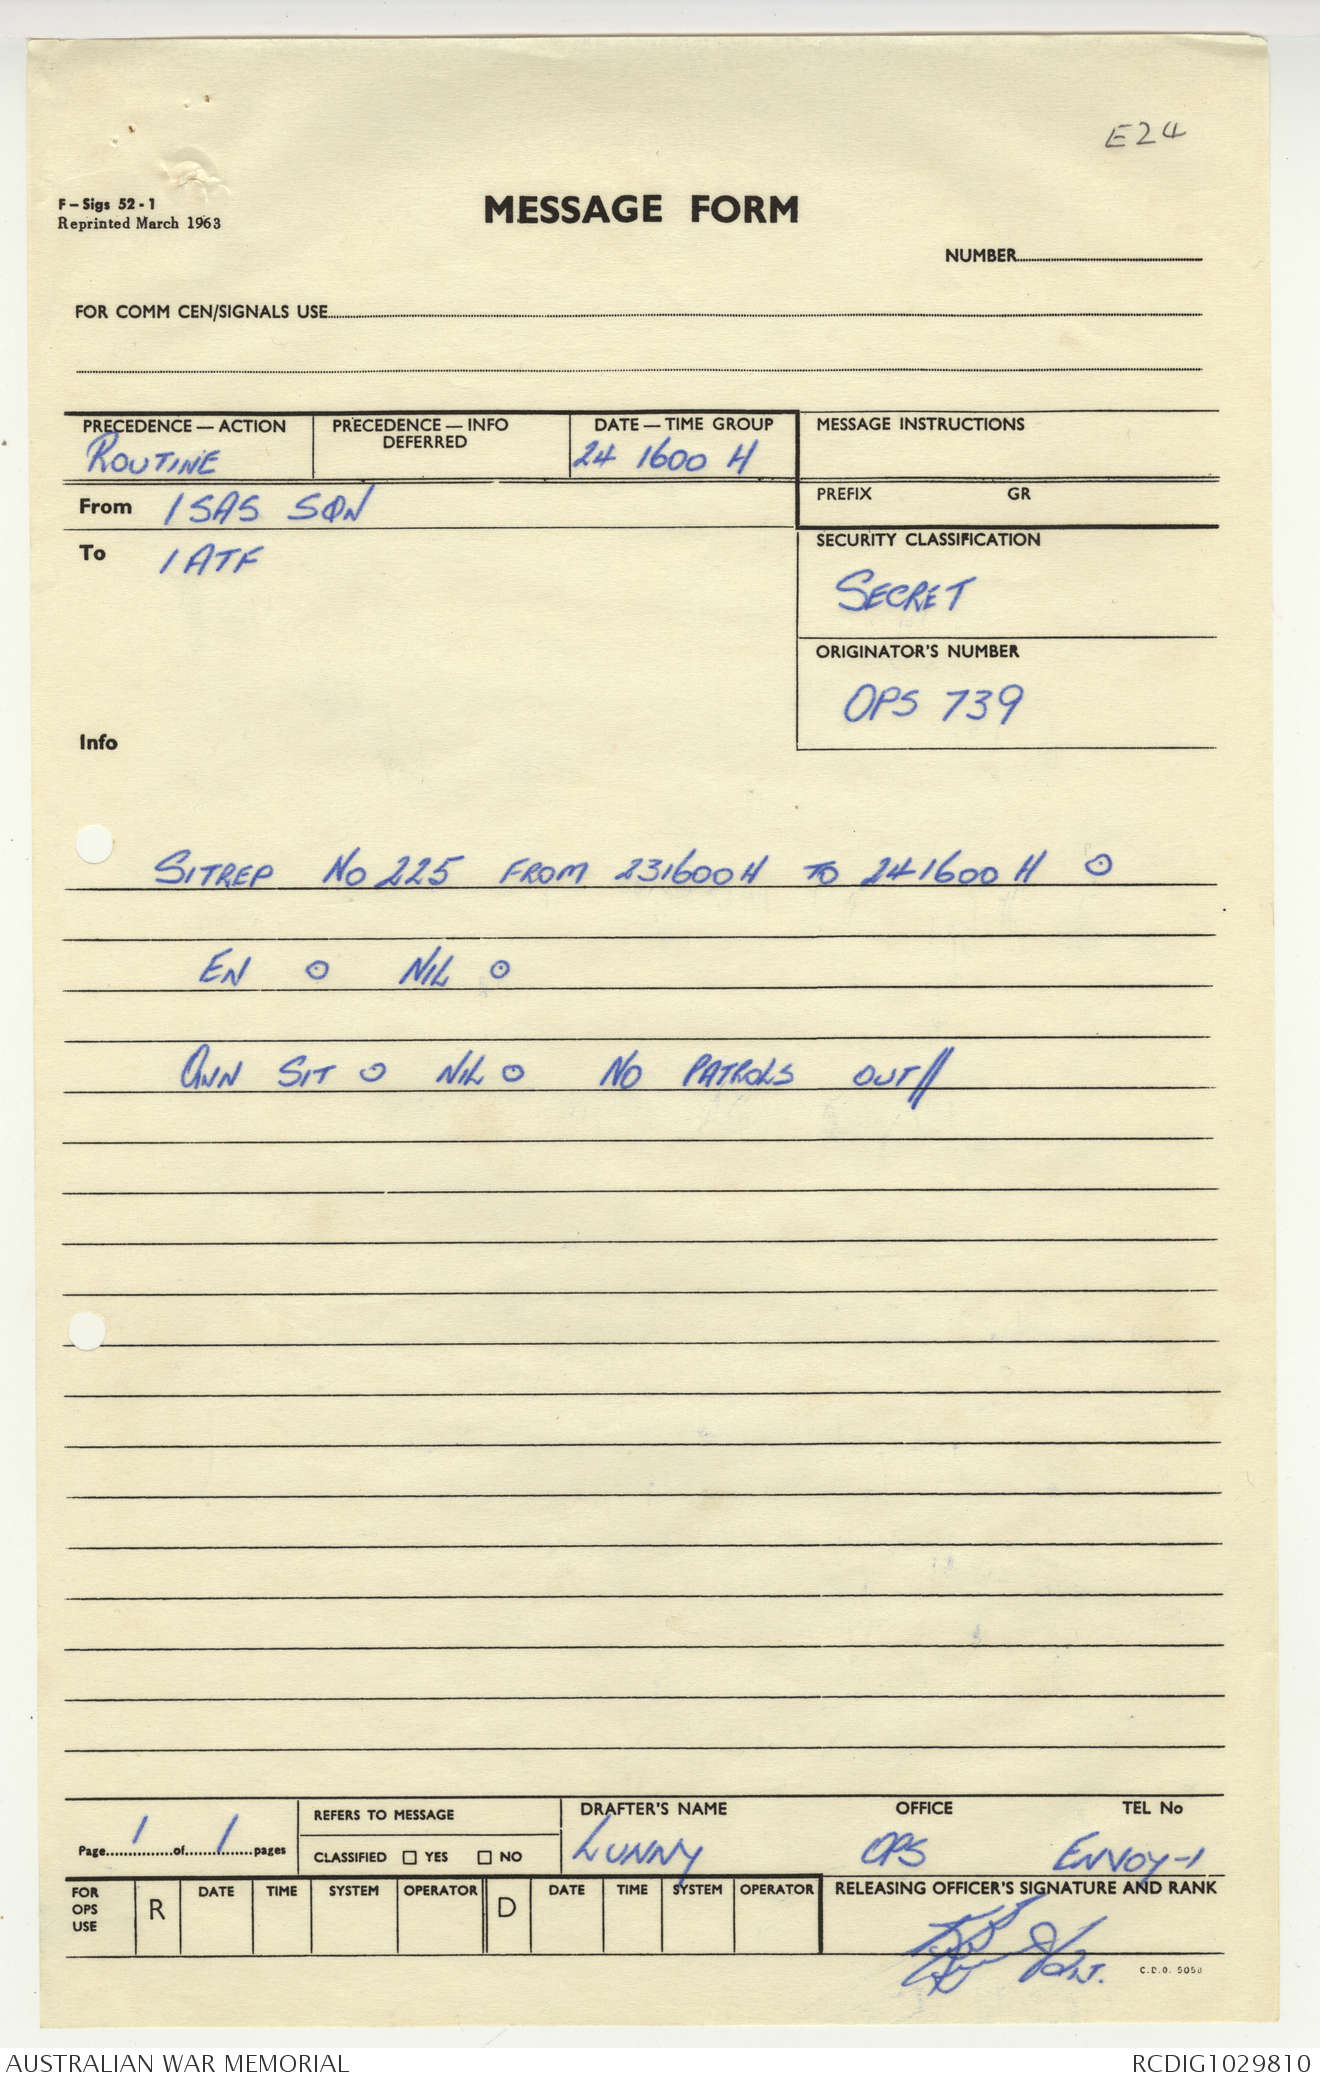 E24
F – Sigs 52 - 1
Reprinted March 1963
MESSAGE FORM
NUMBER
FOR COMM CEN/SIGNALS USE
PRECEDENCE — ACTION
ROUTINE
PRECEDENCE — INFO
DEFERRED
DATE — TIME GROUP
24 1600 H
MESSAGE INSTRUCTIONS
From 1 SAS SQN
PREFIX GR
To 1 ATF
SECURITY CLASSIFICATION
SECRET
ORIGINATOR'S NUMBER
OPS 739
Info
SITREP NO 225 FROM 231600H TO 241600 H O
EN O NIL O
OWN SIT O NIL O NO PATROLS OUT//
Page 1 of 1 pages
REFERS TO MESSAGE
CLASSIFIED YES NO
DRAFTER'S NAME OFFICE TEL No
LUNNY OPS ENVOY-1
FOR OPS USE
R DATE TIME SYSTEM OPERATOR D DATE TIME SYSTEM OPERATOR
RELEASING OFFICER'S SIGNATURE AND RANK
C.D.O. 5058
AUSTRALIAN WAR MEMORIAL RCDIG1029810